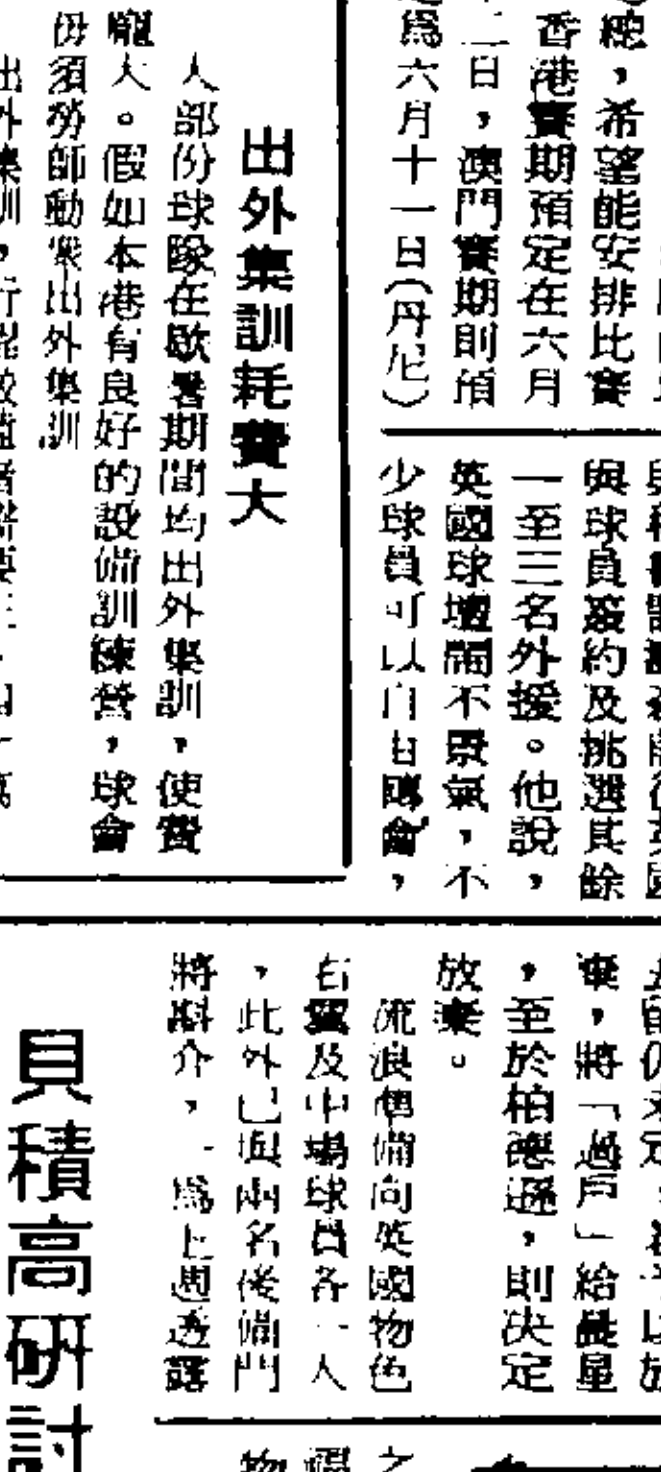 總，希望能安排比賽
香港賽期預定在六月
二日，澳門賽期則預
為六月十一日（丹尼）
與球員簽約及挑選其餘
一至三名外援。他說，
英國球壇鬧不景氣，不
少球員可以自由轉會，
出外集訓耗費大
大部份球隊在歇暑期間均出外集訓，使費
龐大。假如本港有良好的設備訓練營，球會
毋須勞師動眾出外集訓
，將「過戶」給晨星
，至於柏德遜，則決定
放棄。
流浪準備向英國物色
右翼及中場球員各一人
，此外已與兩名後備門
將斟介，一為上週透露
貝積高研討